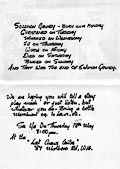 SOLOMON GRUNDY - BORN ON A MONDAY
CHRISTENED ON TUESDAY
MARRIED ON WEDNESDAY
ILL ON THURSDAY
WORSE ON FRIDAY
DIED ON SATURDAY
BURIED ON SUNDAY
AND THAT WAS THE END OF SOLOMON GRUNDY.
We are hoping you will tell a story
play music or just listen, but
whatever you do, Bring a bottle
On Thursday 18th May
8.00pm.
At the